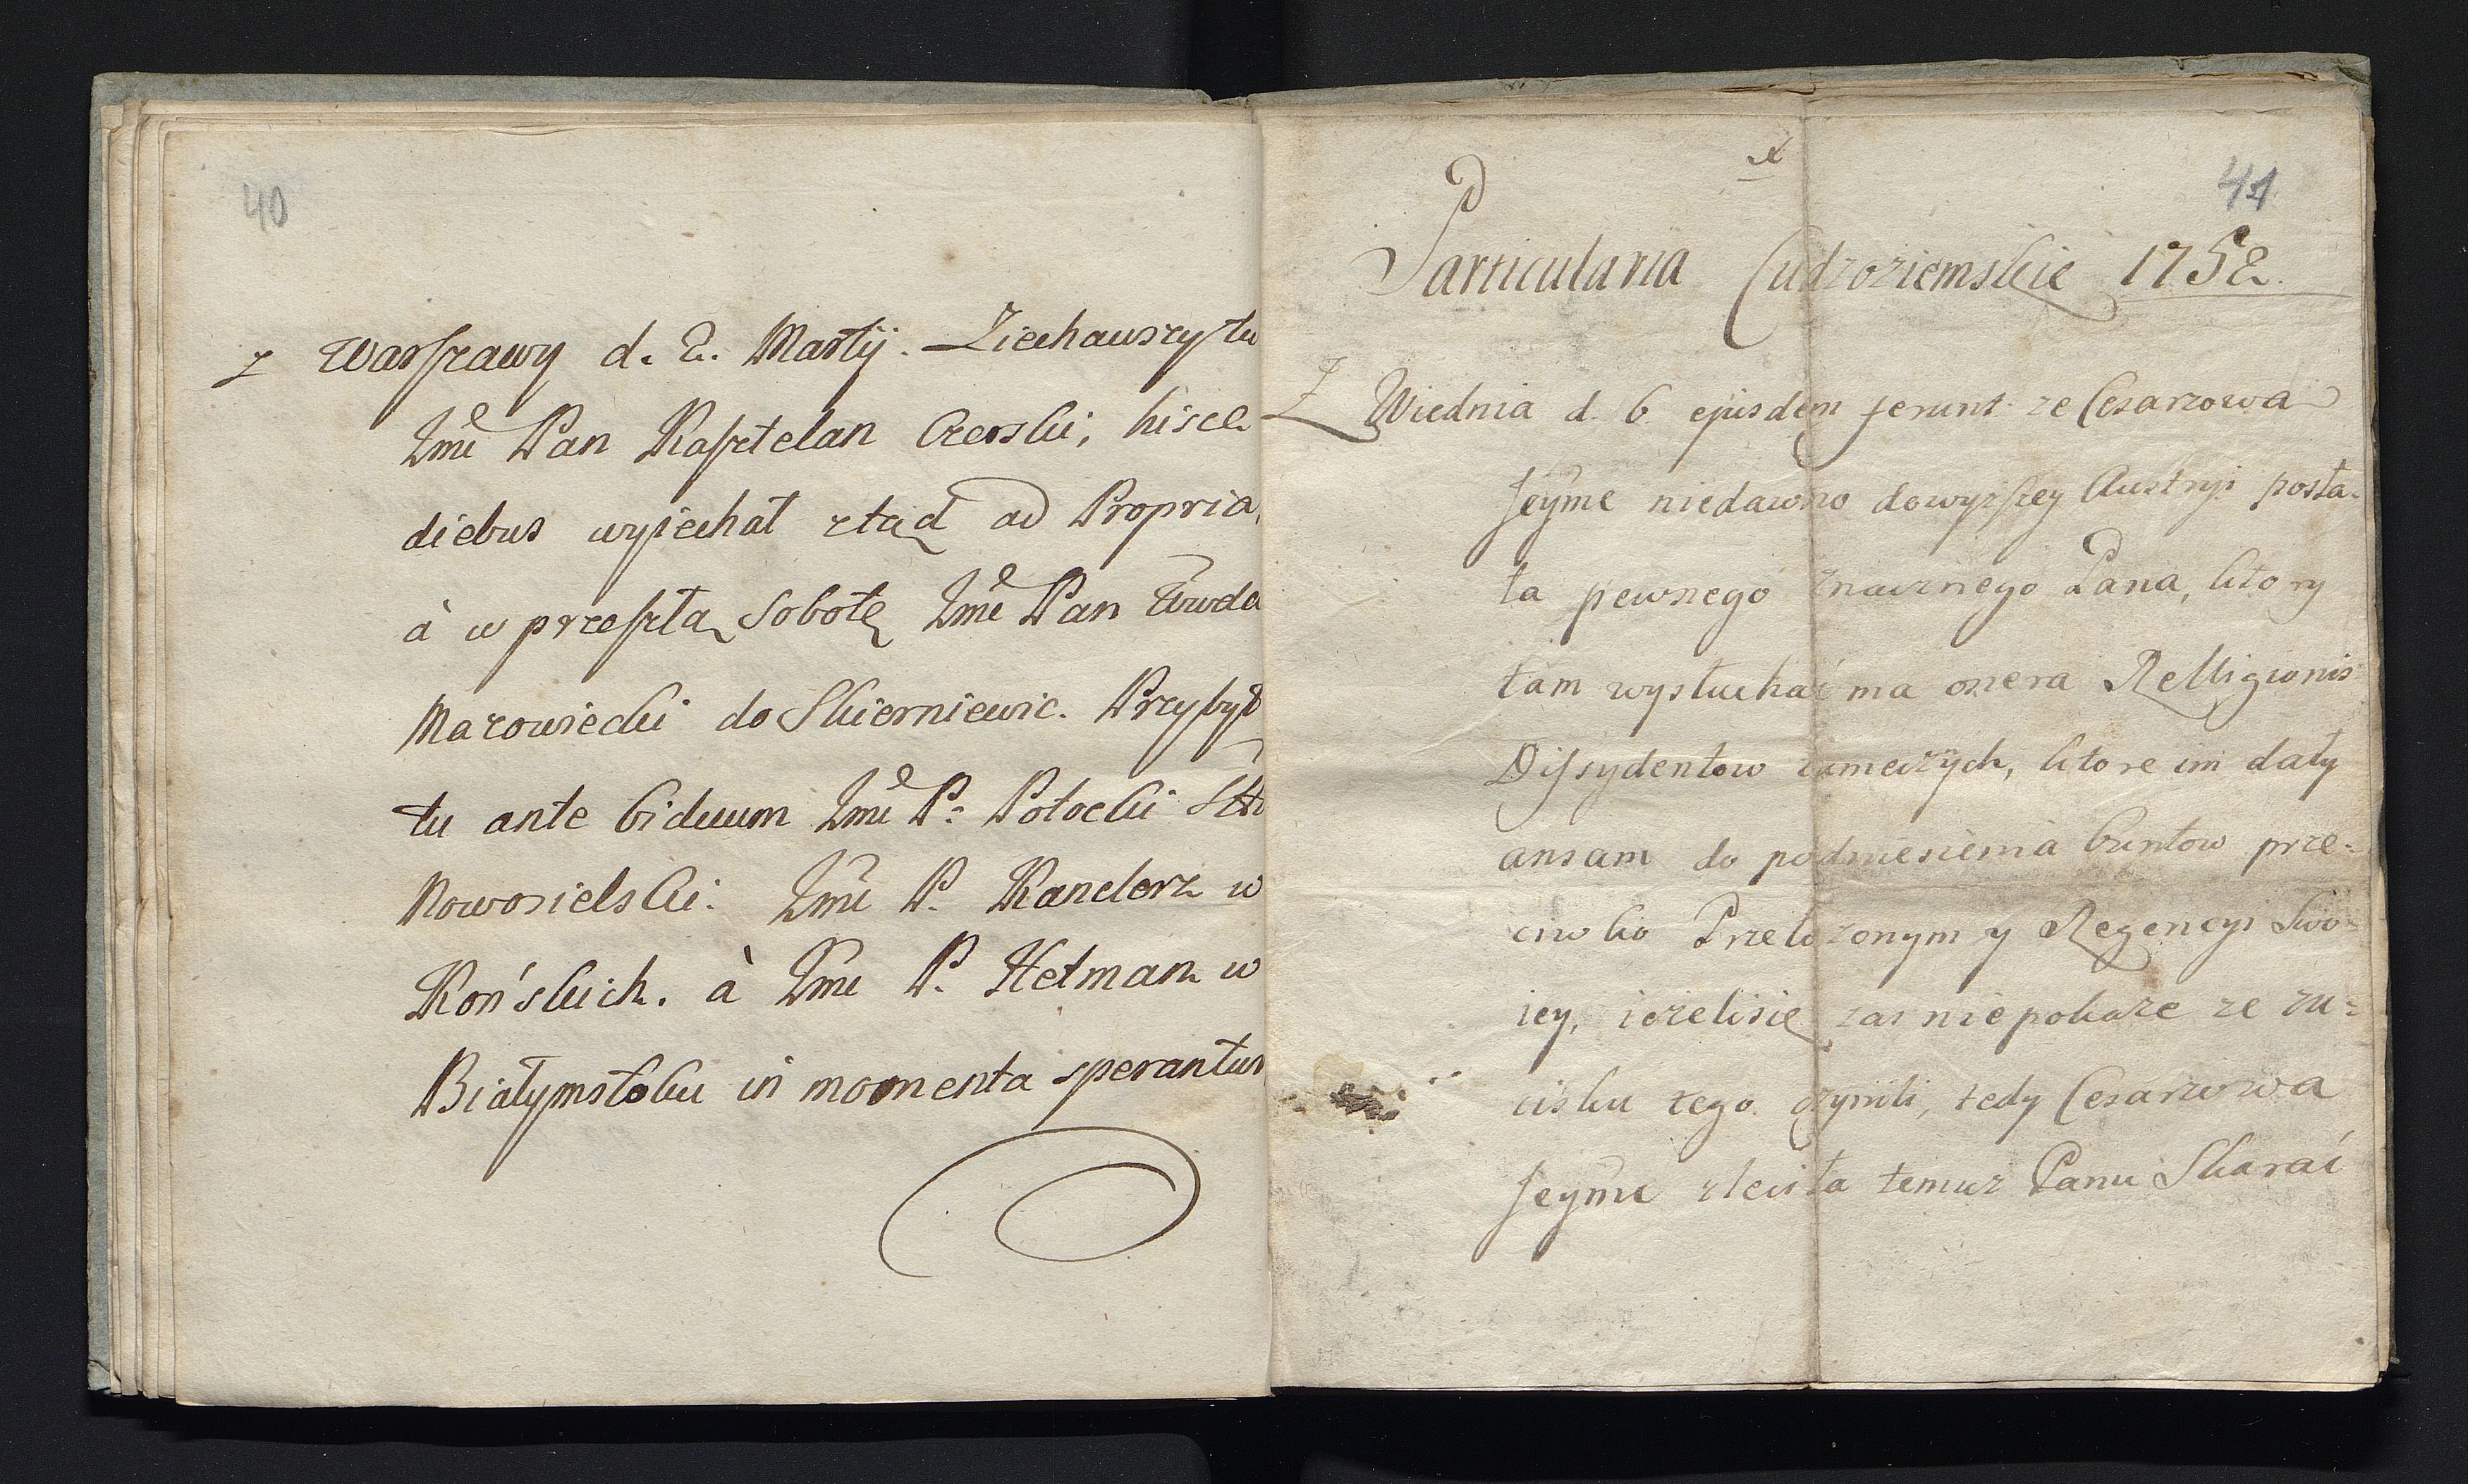 40
z Warszawy d. 2. Martij. Ziechawszy tu
Jmć Pan Kasztelan Czerski, hisce
diebus wyiechał ztąd ad Propria,
à w przeszłą Sobotę Jmć Pan Wwda
Mazowiecki do Skierniewic. Przybył
tu ante biduum Jmć P. Potocki Stta
Nowosielski. Jmć P. Kanclerz w
Końskich. à Jmć P. Hetman w
Białymstoku in momenta sperantur
41
Particularia Cudzoziemskie 1752.
Z Wiednia d. 6 ejusdem ferunt ze Cesarzowa
Jeymć niedawno do wyzszey Austryi posła-
ła pewnego znacznego Pana, ktory
tam wysłuchać ma onera Relligionis
Dissydentow tameczych, ktore im dały
ansam do podniesienia buntow prze-
ciwko Przełozonym y Regencyi Swo-
iey, iezeli się zas nie pokaze ze zu=
cisku tego czynili, tedy Cesarzowa
Jeymć zleciła temuz Panu Skarać